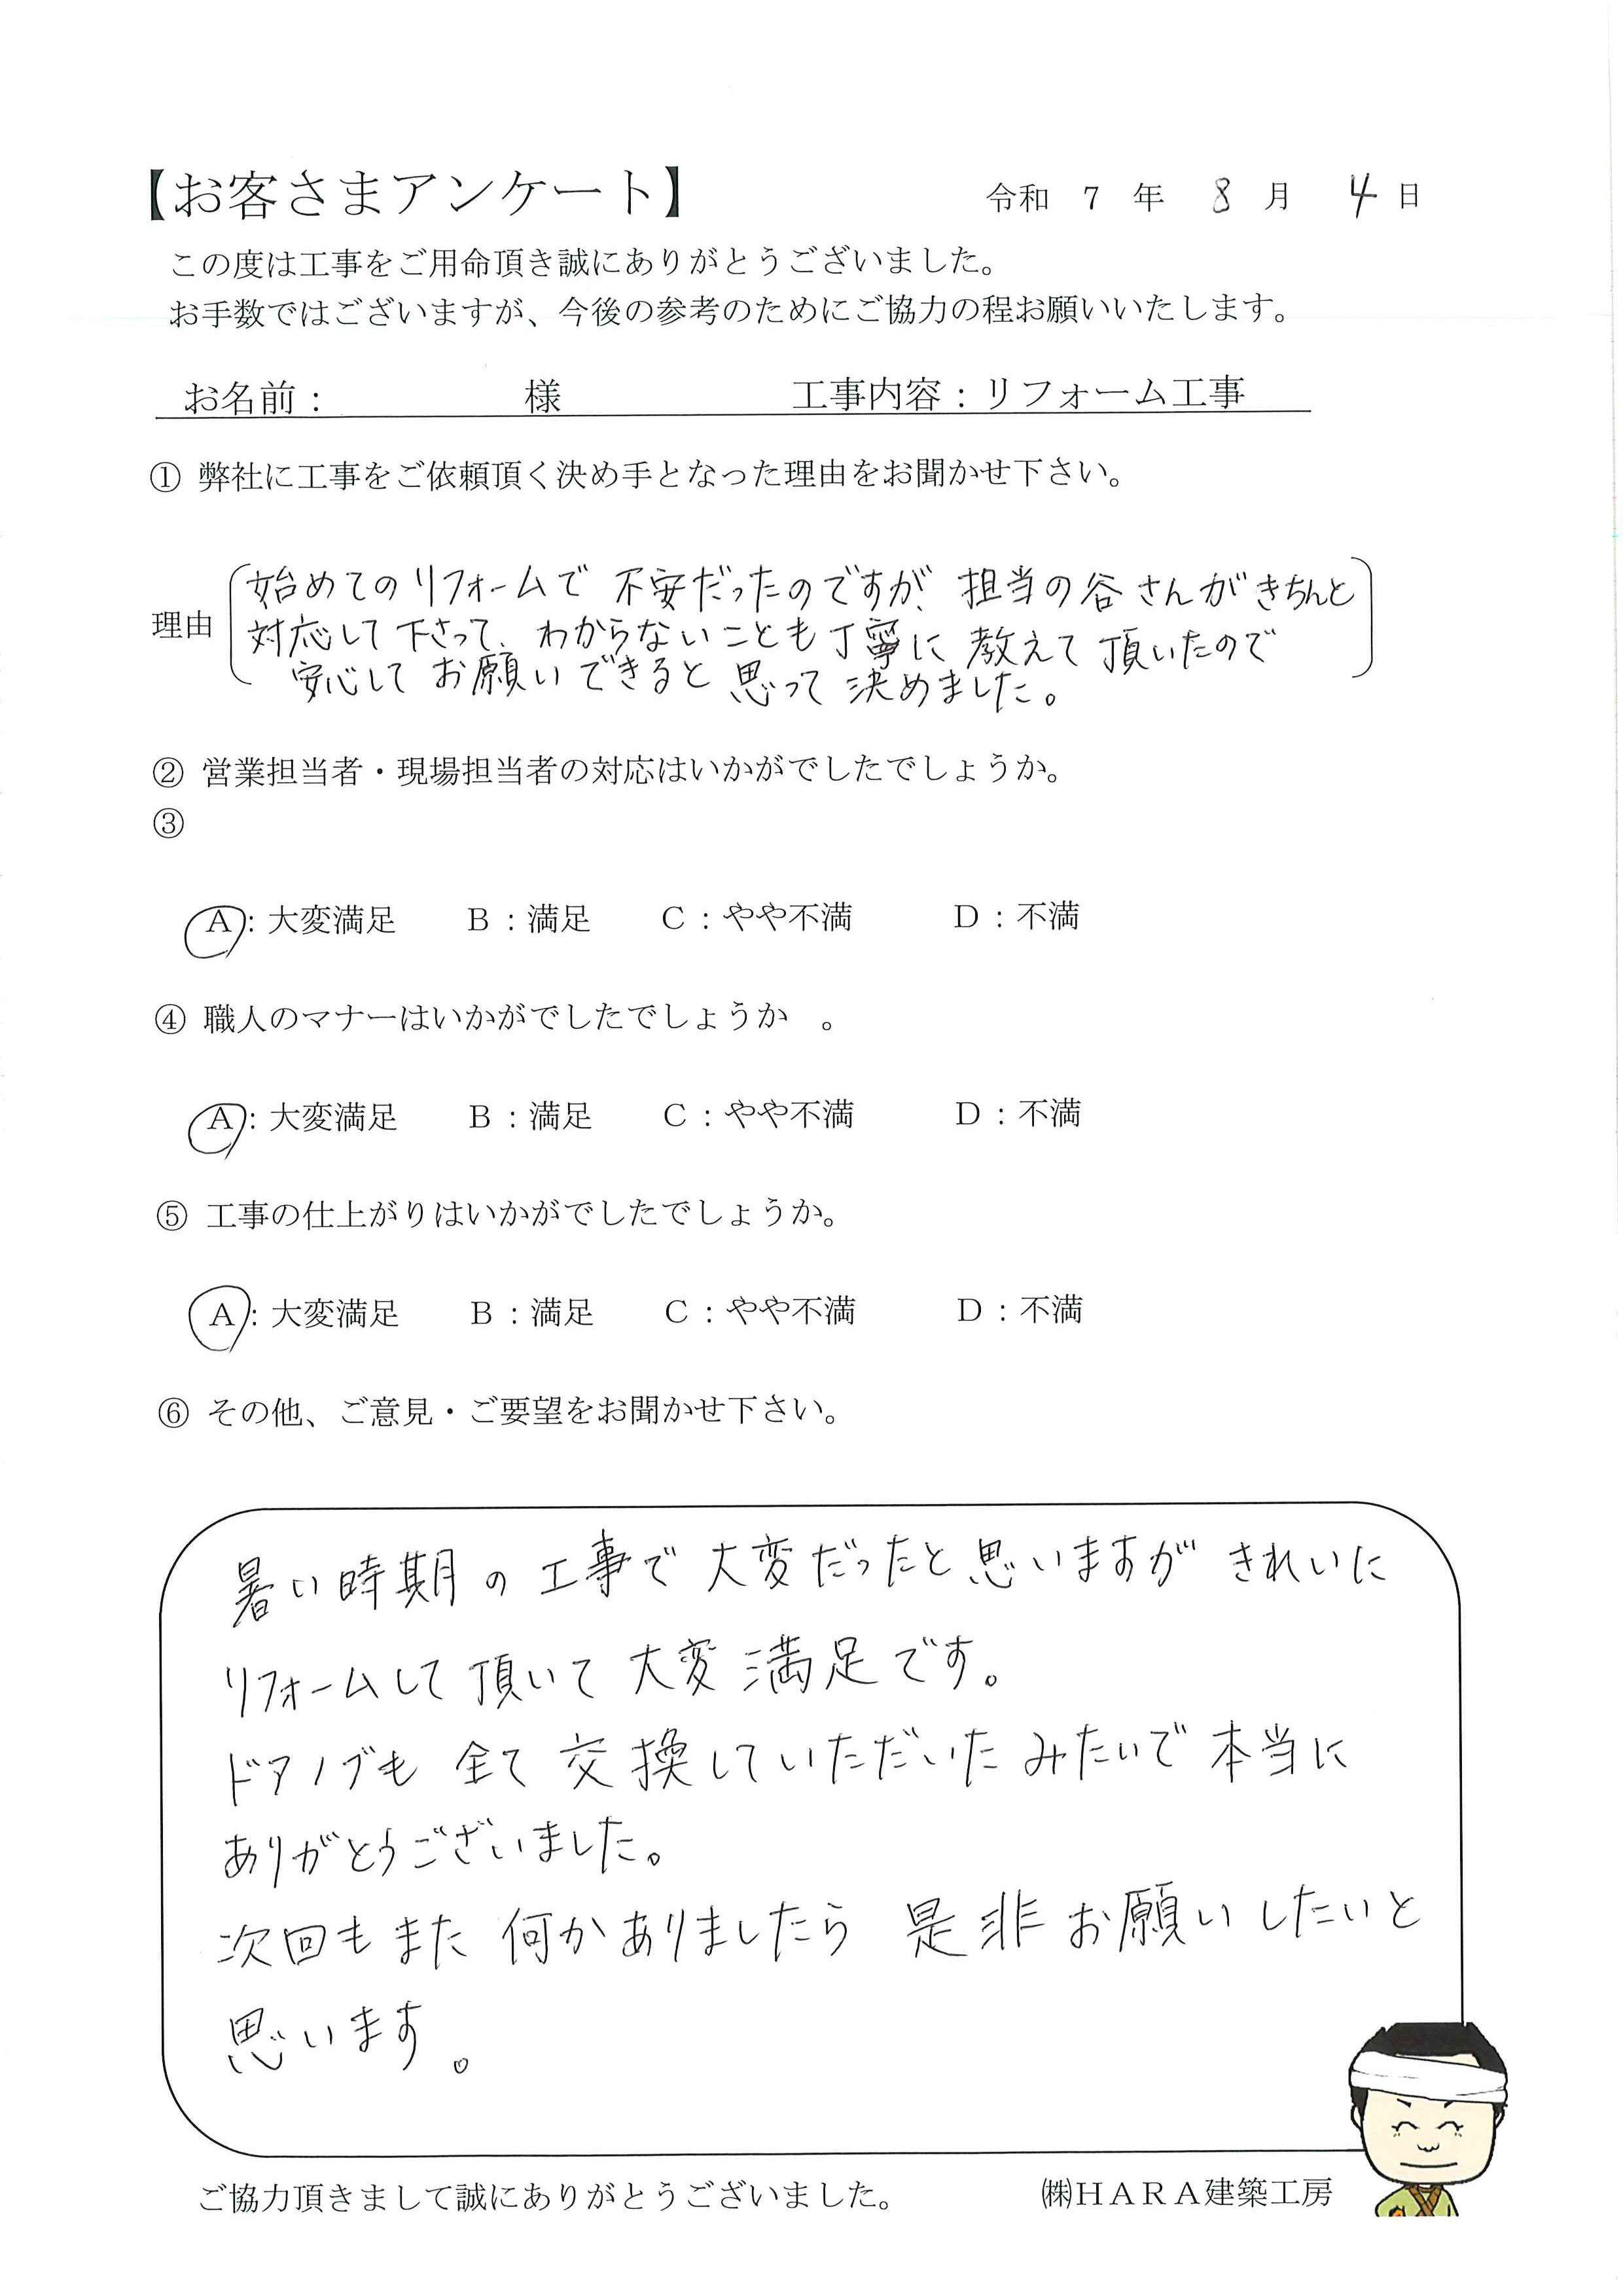 【お客さまアンケート】 令和 7 年 8 月 4 日
この度は工事をご用命頂き誠にありがとうございました。
お手数ではございますが、今後の参考のためにご協力の程お願いいたします。
お名前： 様 工事内容：リフォーム工事
① 弊社に工事をご依頼頂く決め手となった理由をお聞かせ下さい。
始めてのリフォームで 不安だったのですが、担当の谷さんがきちんと
理由 対応して下さって、わからないことも丁寧に教えて頂いたので
安心してお願いできると思って決めました。
② 営業担当者・現場担当者の対応はいかがでしたでしょうか。
③
Ａ：大変満足 Ｂ：満足 Ｃ：やや不満 Ｄ：不満
④ 職人のマナーはいかがでしたでしょうか 。
Ａ：大変満足 Ｂ：満足 Ｃ：やや不満 Ｄ：不満
⑤ 工事の仕上がりはいかがでしたでしょうか。
Ａ：大変満足 Ｂ：満足 Ｃ：やや不満 Ｄ：不満
⑥ その他、ご意見・ご要望をお聞かせ下さい。
暑い時期の工事で大変だったと思いますが きれいに
リフォームして頂いて大変満足です。
ドアノブも全て交換していただいたみたいで本当に
ありがとうございました。
次回もまた何かありましたら 是非お願いしたいと
思います。
ご協力頂きまして誠にありがとうございました。 ㈱ＨＡＲＡ建築工房